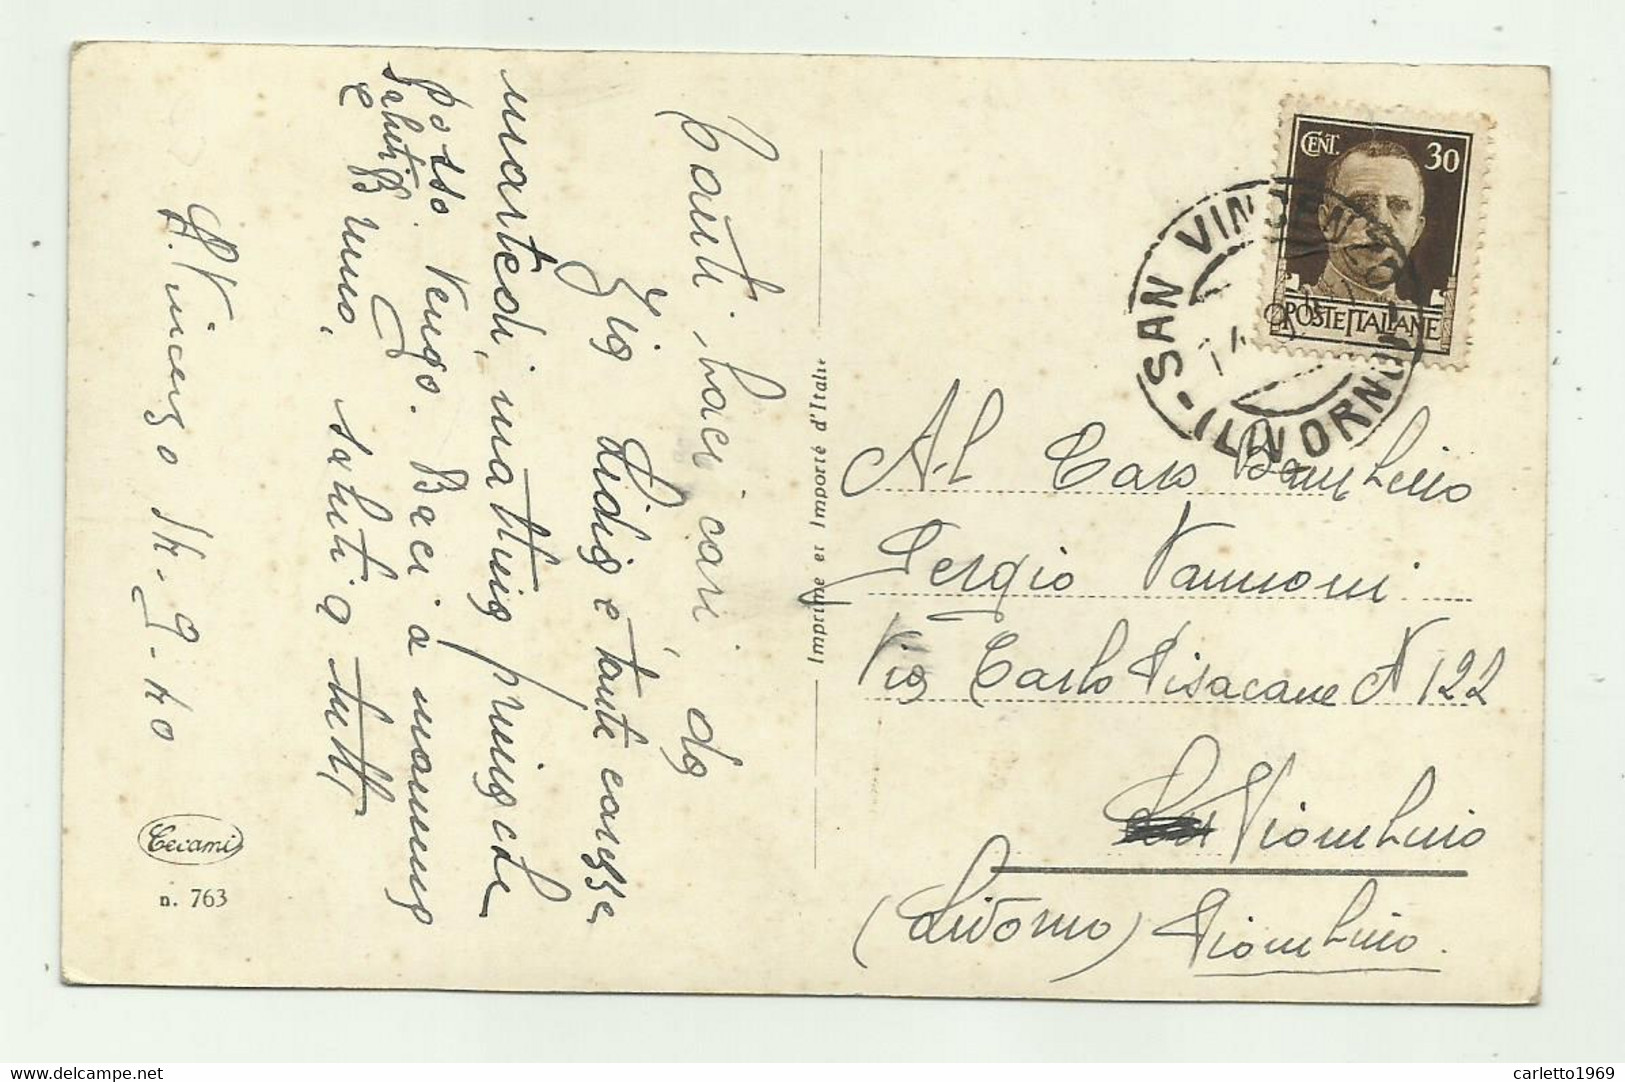 Tanti baci cari, da
Zia Lidia e tante carezze
martedì, mattina prima che
posso vengo. Baci a mamma
e Bruno, saluti a tutti
saluti G
S. Vincenzo 14-9-40
Cecami
n. 763
Imprimé et Importé d'Italie
CENT. 30
POSTE ITALIANE
SAN VINCENZO
(LIVORNO)
14
Al Caro Bambino
Sergio Vannoni
Via Carlo Pisacane N 122
Piombino
(Livorno) Piombino.
carletto1969
delcampe.net